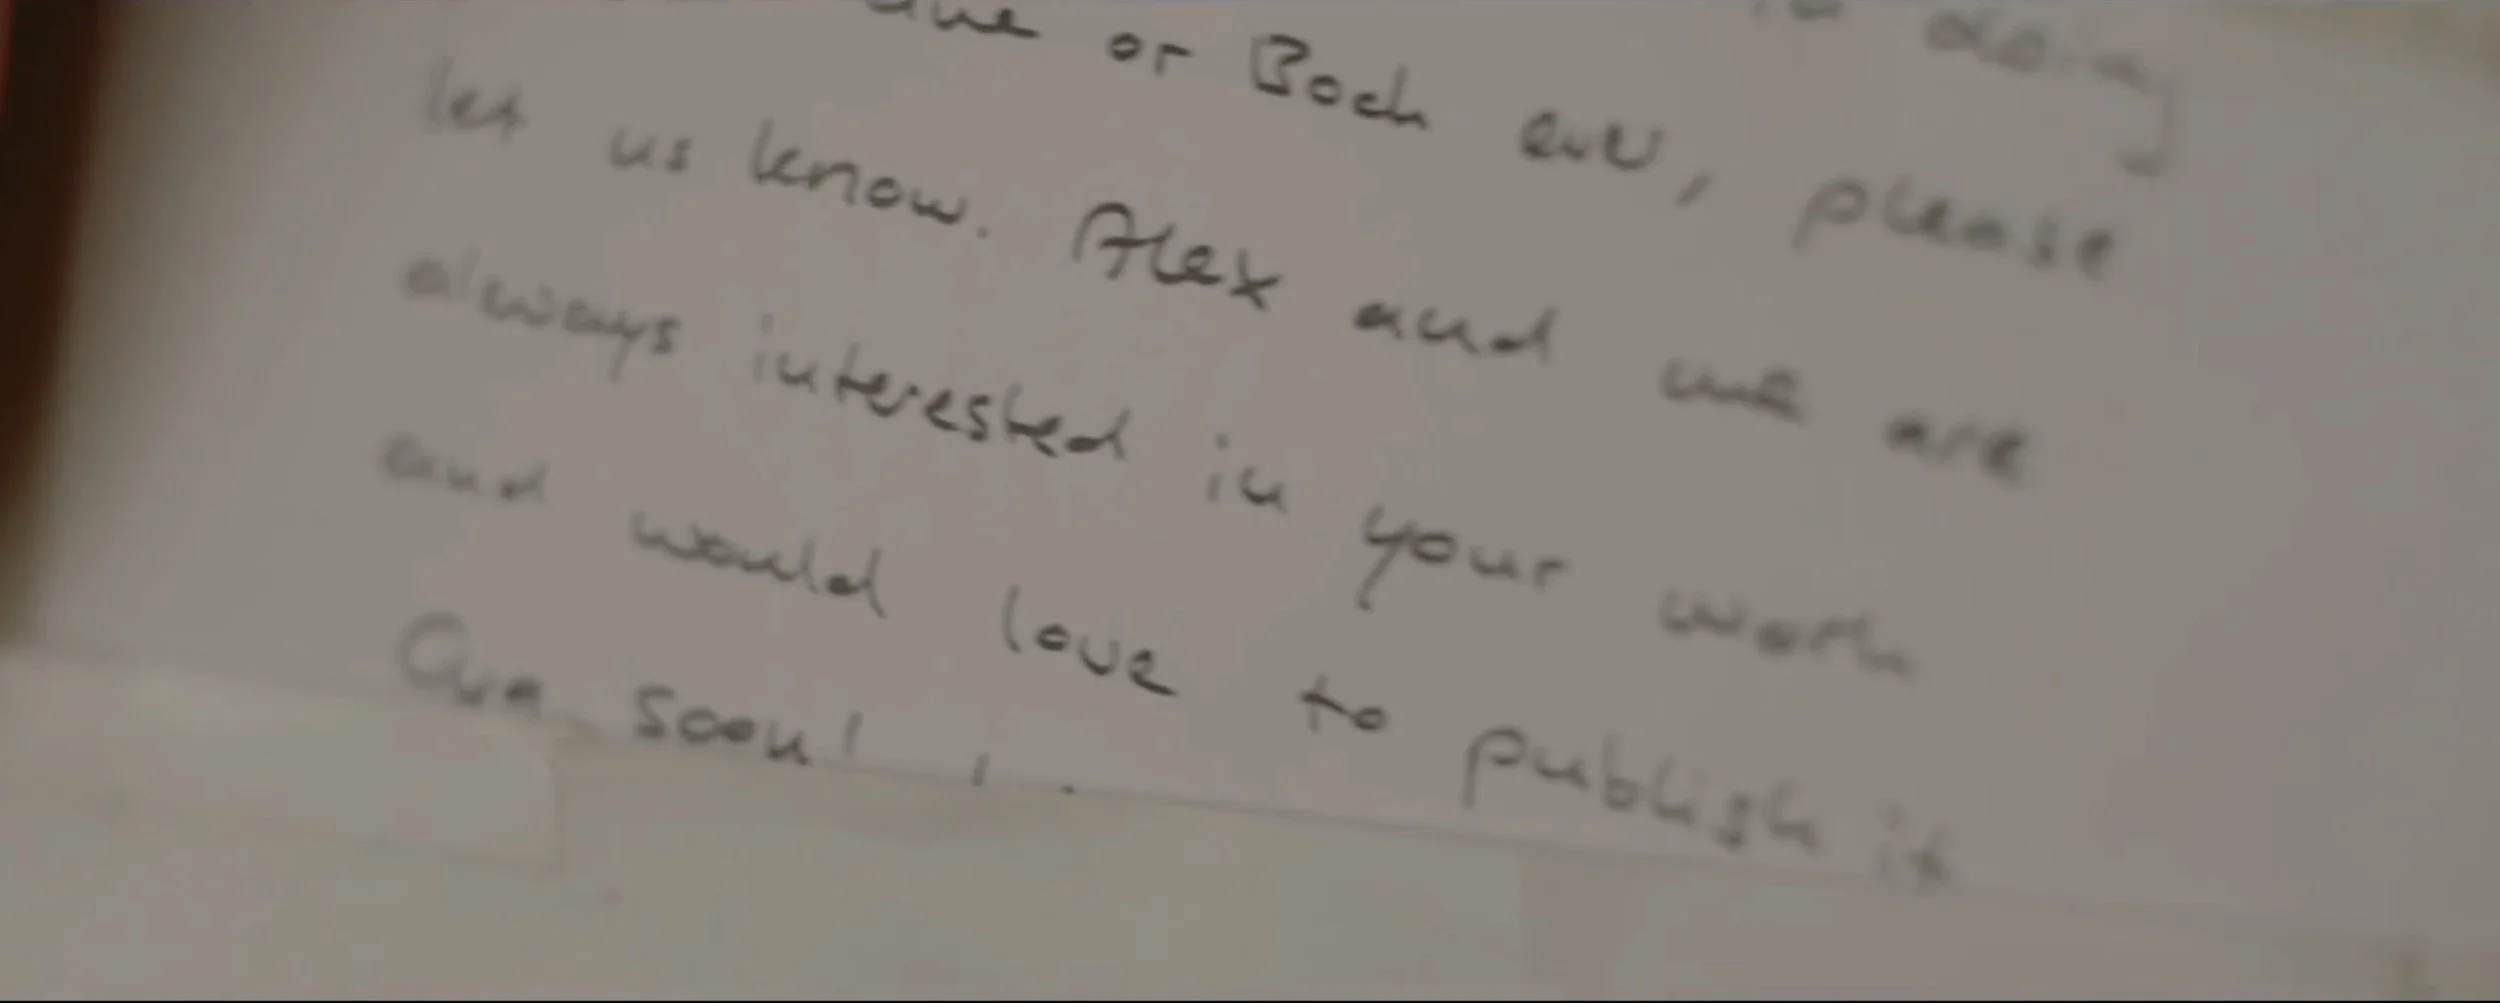 or Boch ever, please
let us know. Alex and me are
always interested in your work
and would love to publish it
soon!